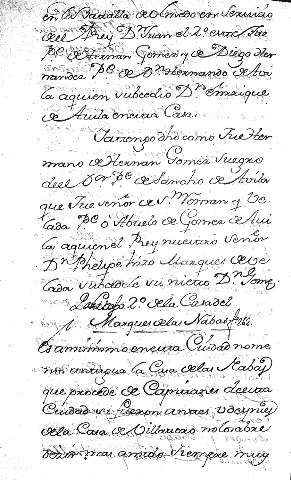 en la Batalla de Olmedo en servicio
del Rey Dn Juan el 2º cuio fue
Pe de Hernan Gomez y de Diego Her
nandez Pe de Dn Hernando de Avi
la a quien subcedio Dn Enrrique
de Avila en esta Casa.
Sancho dho como fue Her
mano de Hernan Gomez suegro
del Pe de Sancho de Avila
que fue señor de Sn Roman y Ve
lada Pe o Abuelo de Gomez de Avi
la a quien el Rey nuestro señor
Dn Phelipe hizo Marques de Ve
lada subcedele su nieto Dn Gomez
2º de la Casa del
Marques de las Nabas
Es a mi mismo en esta Ciudad no me
nos antigua la Casa de las Nabas
que procede de Capitanes de esta
Ciudad y fueron antes y despues
de la Casa de Villatoro no
señor mas siempre muy